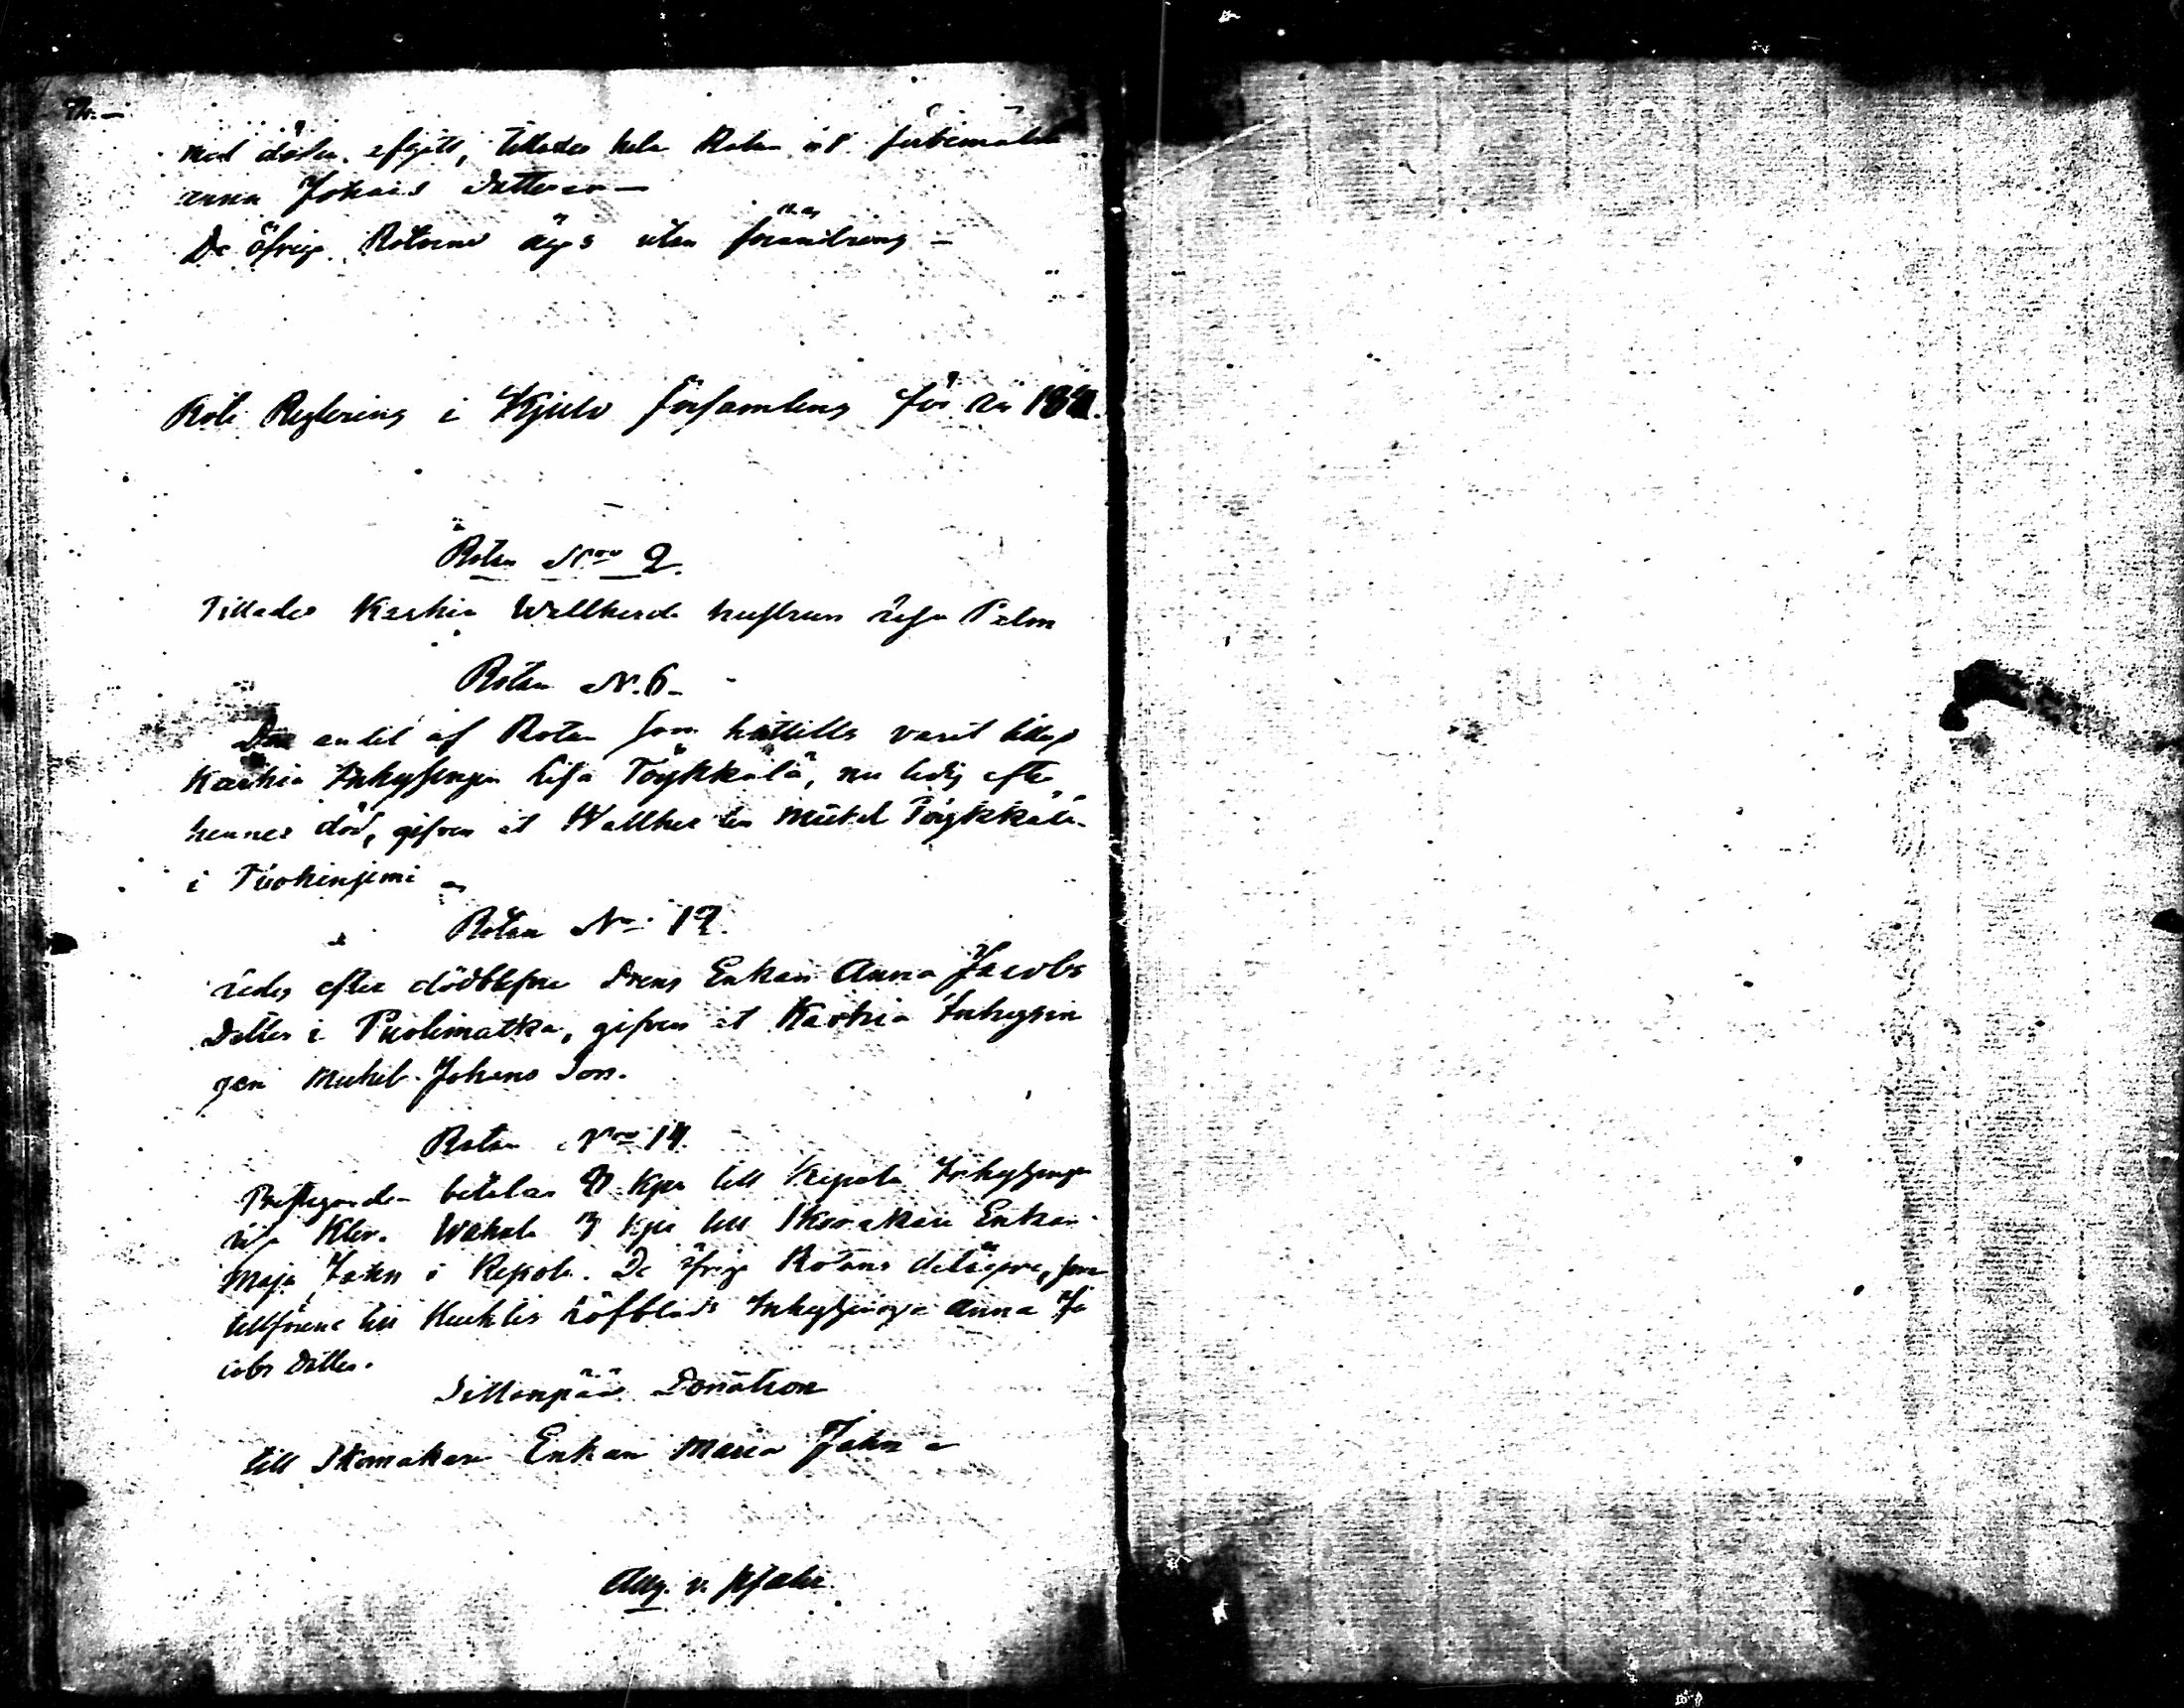 med döden afgått, tillades hela Rotan åt förbemälde
Anna Johans Dotter
De öfrige Rotarne äges utan förändring
Rote Reglering i Kjulo församling för år
Rotan Nro 2.
Tillades Karhia Wallherde hustrun Palm
Rotan N. 6
Den andel af Rotan som härtills varit tillagd
Karhia Inhysingen Lisa Töykkälä, nu ledig efter
hennes död, gifven åt Wallherden Mickel Töykkälä
i Tuohiniemi
Rotan N 12.
ledig efter dödblefne Dreng Enkan Anna Jacobs
Dotter i Puolimatka, gifven åt Karhia Inhysin
gen Michel Johans Son.
Rotan Nro 14.
Prestegården betalar kpr till Repola Inhysingen
Wahala kpr till Skomakare Enkan
Maja Jahn i Repola. De öfrige Rotans delägare, som
tillförene till Kuuhlis Inhysinge Anna Ja
cobs Dotter.
Sillanpää Donation
till Skomakare Enkan Maria Jahn